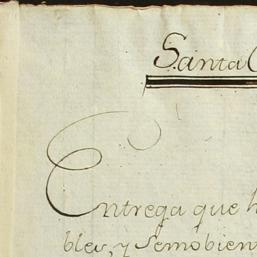 Santa C
Entrega que h
bles, y Semobien